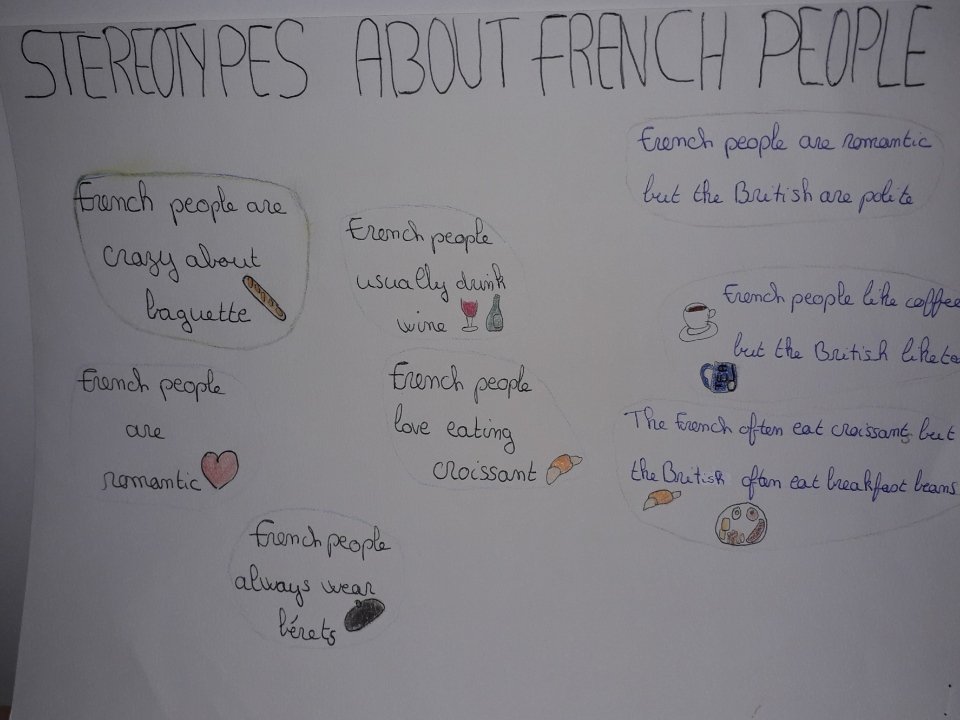 STEREOTYPES ABOUT FRENCH PEOPLE
French people are
crazy about
baguette
French people
usually drink
wine
French people are romantic
but the British are polite
French people like coffee
but the British like te
French people
are
romantic
French people
love eating
croissant
The French often eat croissant, but
the British often eat breakfast beans
French people
always wear
bérets